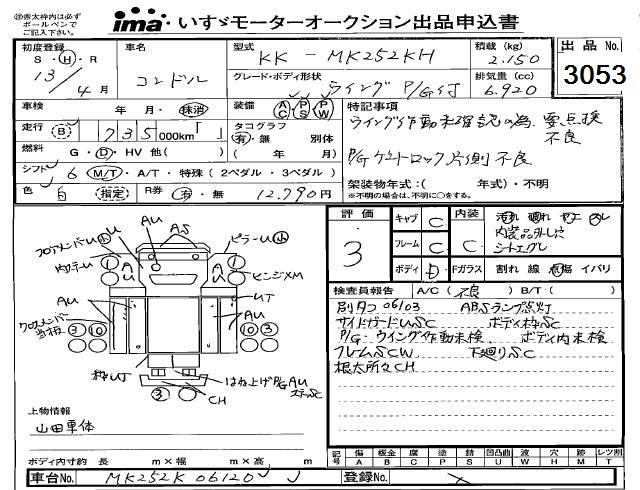 ㊟赤太枠内は必ず
ボールペンで
ご記入下さい。
ima いすゞモーターオークション出品申込書
初度登録
S・H・R
13/4 月
車名
コンドル
型式
KK-MK252KH
積載 (kg)
2.150
出品No.
3053
グレード・ボディ形状
ウイング P/G付
排気量 (cc)
6.920
車検 年・月・抹消
装備 AC PS PW
走行 (B) 735,000km「 」
タコグラフ
有・無 別体
( 年/ 月)
燃料 G・D・HV 他( )
シフト 6 M/T・A/T・特殊(2ペダル・3ペダル)
色 白 指定 R券 有・無 12.790円
特記事項
ウイング作動未確認の為 要点検
不良
P/G ゲートロック片側不良
架装物年式:( 年式)・不明
※不明の場合は、不明に○をする。
評価
3
キャブ C
フレーム C
ボディ D
内装
C
汚れ 割れ ヤニ スレ
内装品外し穴
シートエグレ
Fガラス 割れ 線 点傷 イバリ
検査員報告 A/C(不良) B/T( )
別タコ 06/03 ABSランプ点灯
サイドガードUSC ボディ枠SC
P/G・ウイング作動未検 ボディ内未検
フレームSCW 下廻りSC
根太所々CH
フロアメンバーU小
AU
AS
ピラーU小
内ステーU
AU
AU
ヒンジXM
AU
UT
クロスメンバー
当板
AU
AU
3 10
10 3
枠UT
はね上げP/G AU
ステーSC
3
CH
上物情報
山田車体
ボディ内寸約 長 m×幅 m×高 m
記号 傷A 板金B 腐C 塗P 錆S 凹凸曲U 波W 穴H 時計M レツ割T
車台No. MK252K 06120
登録No.